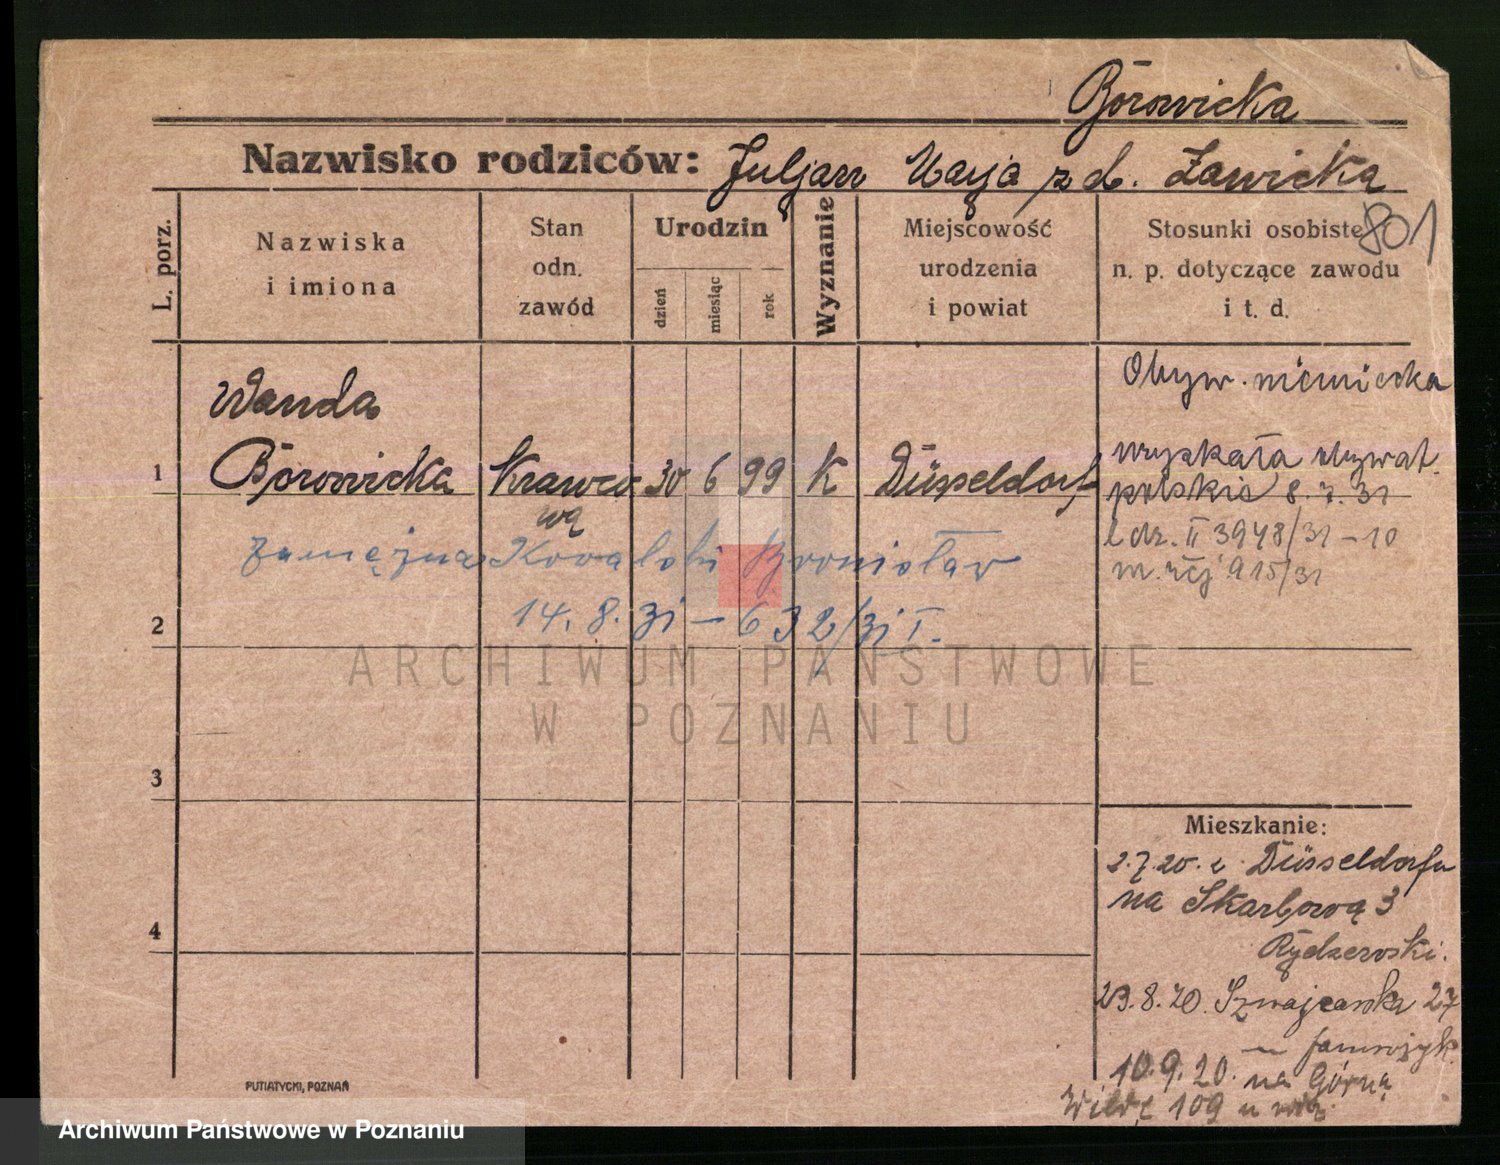 Borowicka
Nazwisko rodziców: Juljan Marja z d. Zawicka
801
L. porz.
Nazwiska
i imiona
Stan
odn.
zawód
Urodzin
dzień
miesiąc
rok
Wyznanie
Miejscowość
urodzenia
i powiat
Stosunki osobiste
n. p. dotyczące zawodu
i t. d.
Obyw. niemiecka
Wanda
1 Borowicka Krawco 30 6 99 K Düsseldorf
wą
wyskała obywat.
polskie 8.7.31
l dz. II 3948/31-10
915/31
zamężna Kowalski Bronisław
2 14.8.31 - 632/31 I.
3
4
Mieszkanie:
2.7.20. z Düsseldorfu
na Skarbową 3
23.8.20. Szwajcarska 27
10.9.20. na Górną
Wildę 109 u
PUTIATYCKI, POZNAŃ
ARCHIWUM PAŃSTWOWE
W POZNANIU
Archiwum Państwowe w Poznaniu